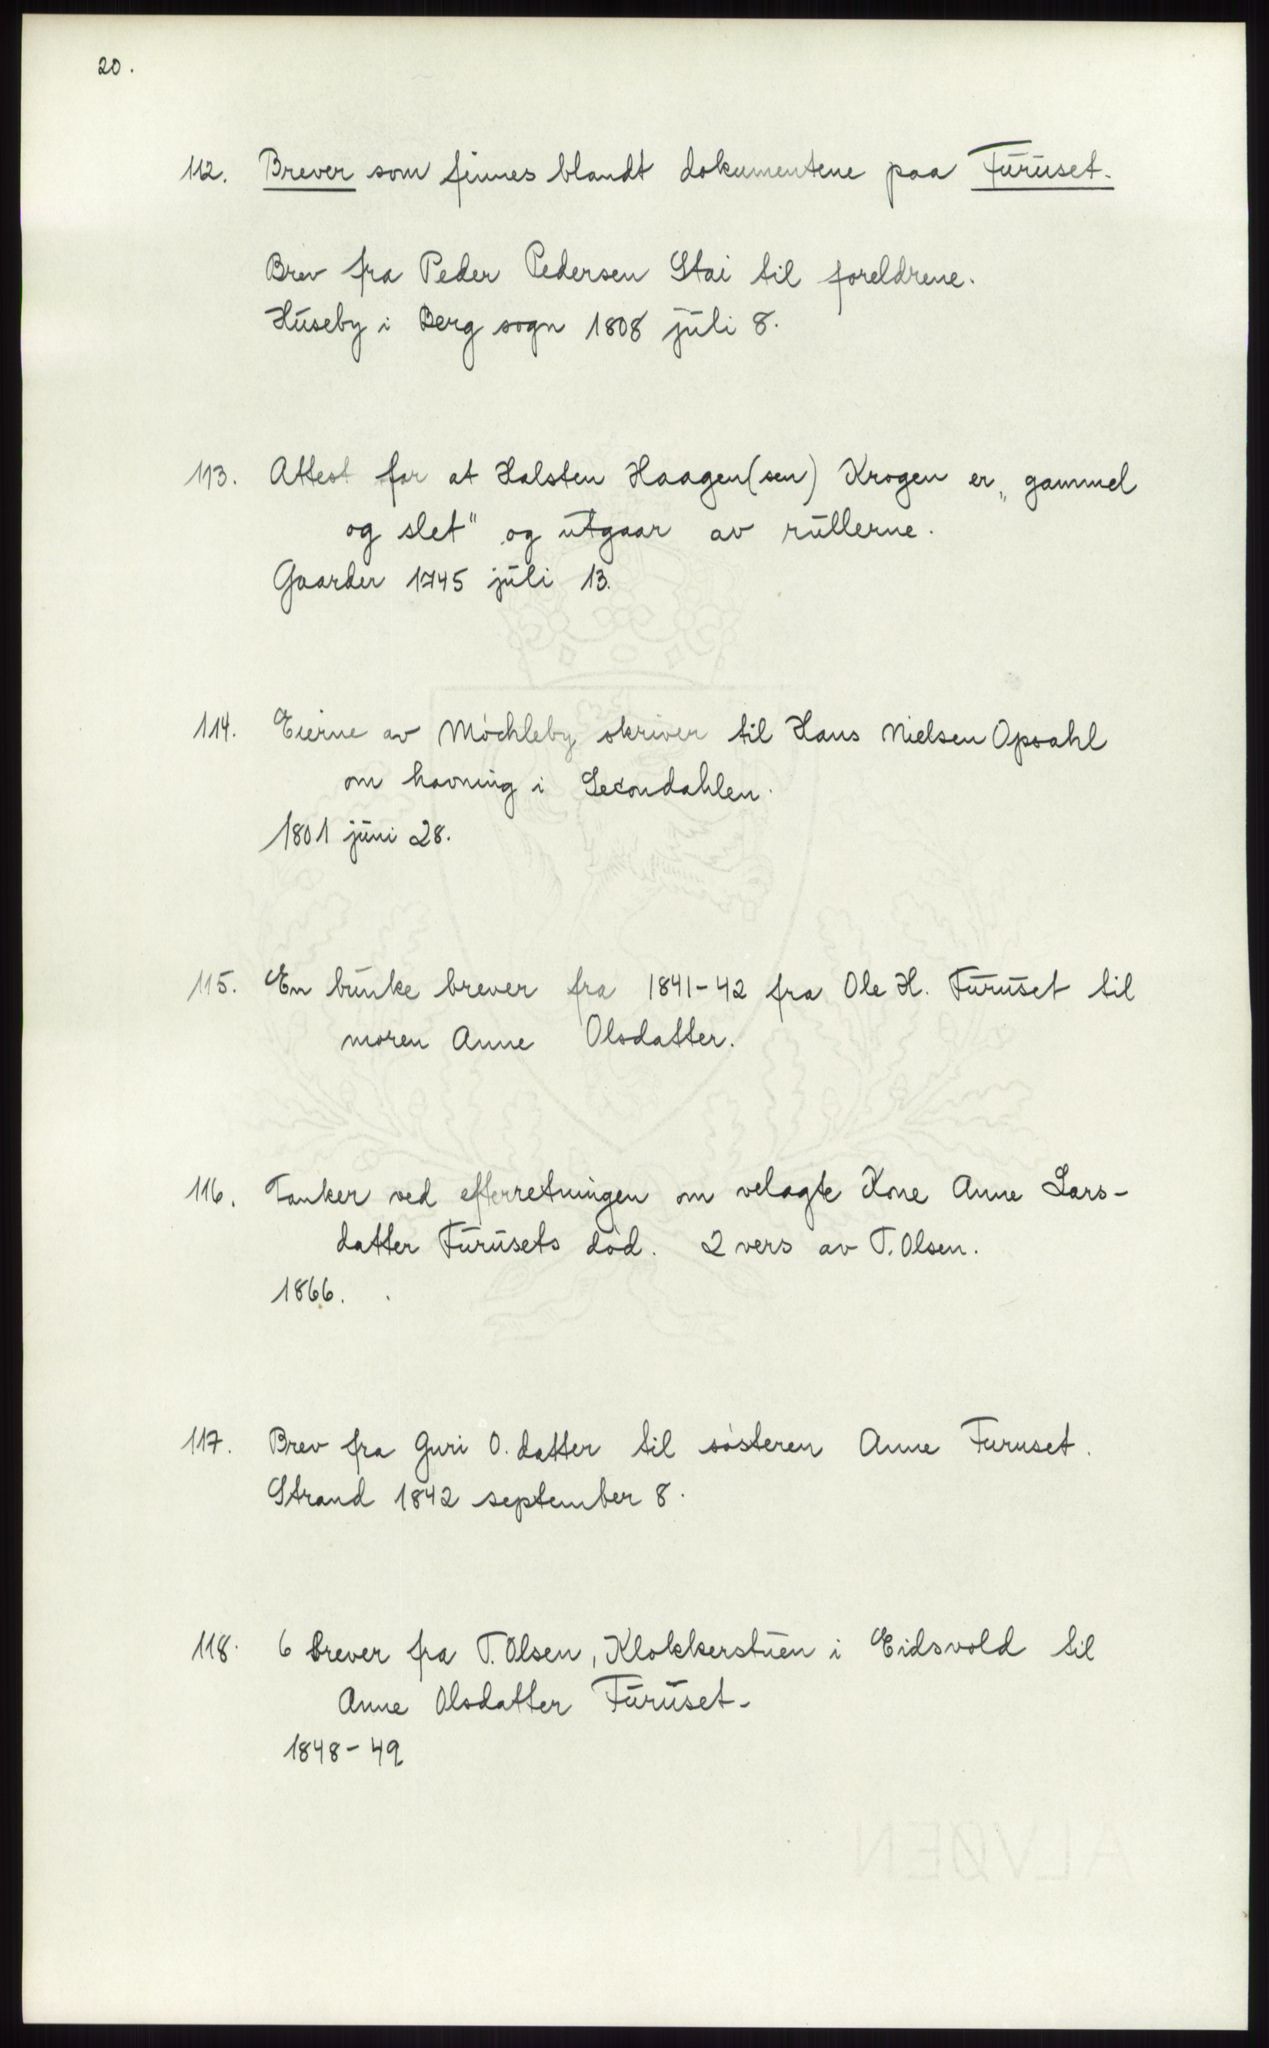 20.
112. Brever som finnes blandt dokumentene paa Furuset.
Brev fra Peder Pedersen Stai til foreldrene.
Huseby i Berg sogn 1808 juli 8.
113. Attest for at Halsten Haagen(sen) Krogen er „gammel
og slet" og utgaar av rullerne.
Gaarder 1745 juli 13.
114. Eierne av Möchleby skriver til Hans Nielsen Opsahl
om havning i
1801 juni 28.
115. En bunke brever fra 1841-42 fra Ole H. Furuset til
moren Anne Olsdatter.
116. Tanker ved efterretningen om velagte Kone Anne Lars-
datter Furusets död. 2 vers av T. Olsen.
1866.
117. Brev fra Guri O. datter til sösteren Anne Furuset.
Strand 1842 september 8.
118. 6 brever fra T. Olsen, Klokkerstuen i Eidsvold til
Anne Olsdatter Furuset-
1848-49
ALVØEN